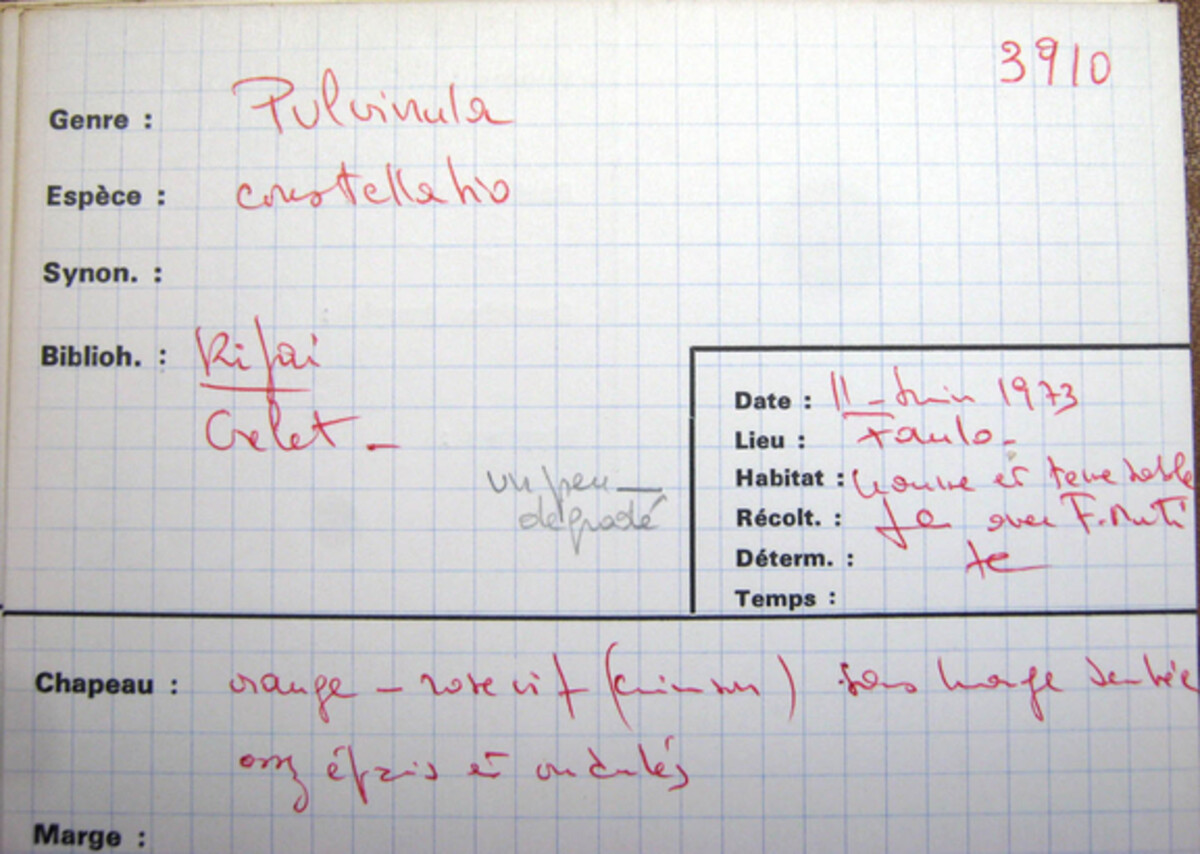 3910
Genre : Pulvinula
Espèce : constellatio
Synon. :
Biblioh. : Rifai
Grelet -
un peu
dégradé
Date : 11 - Juin 1973
Lieu :
Habitat : et terre sable
Récolt. : avec F.
Déterm. :
Temps :
Chapeau : orange - rose vif ( ) sans marge dentée
assez épais et ondulés
Marge :